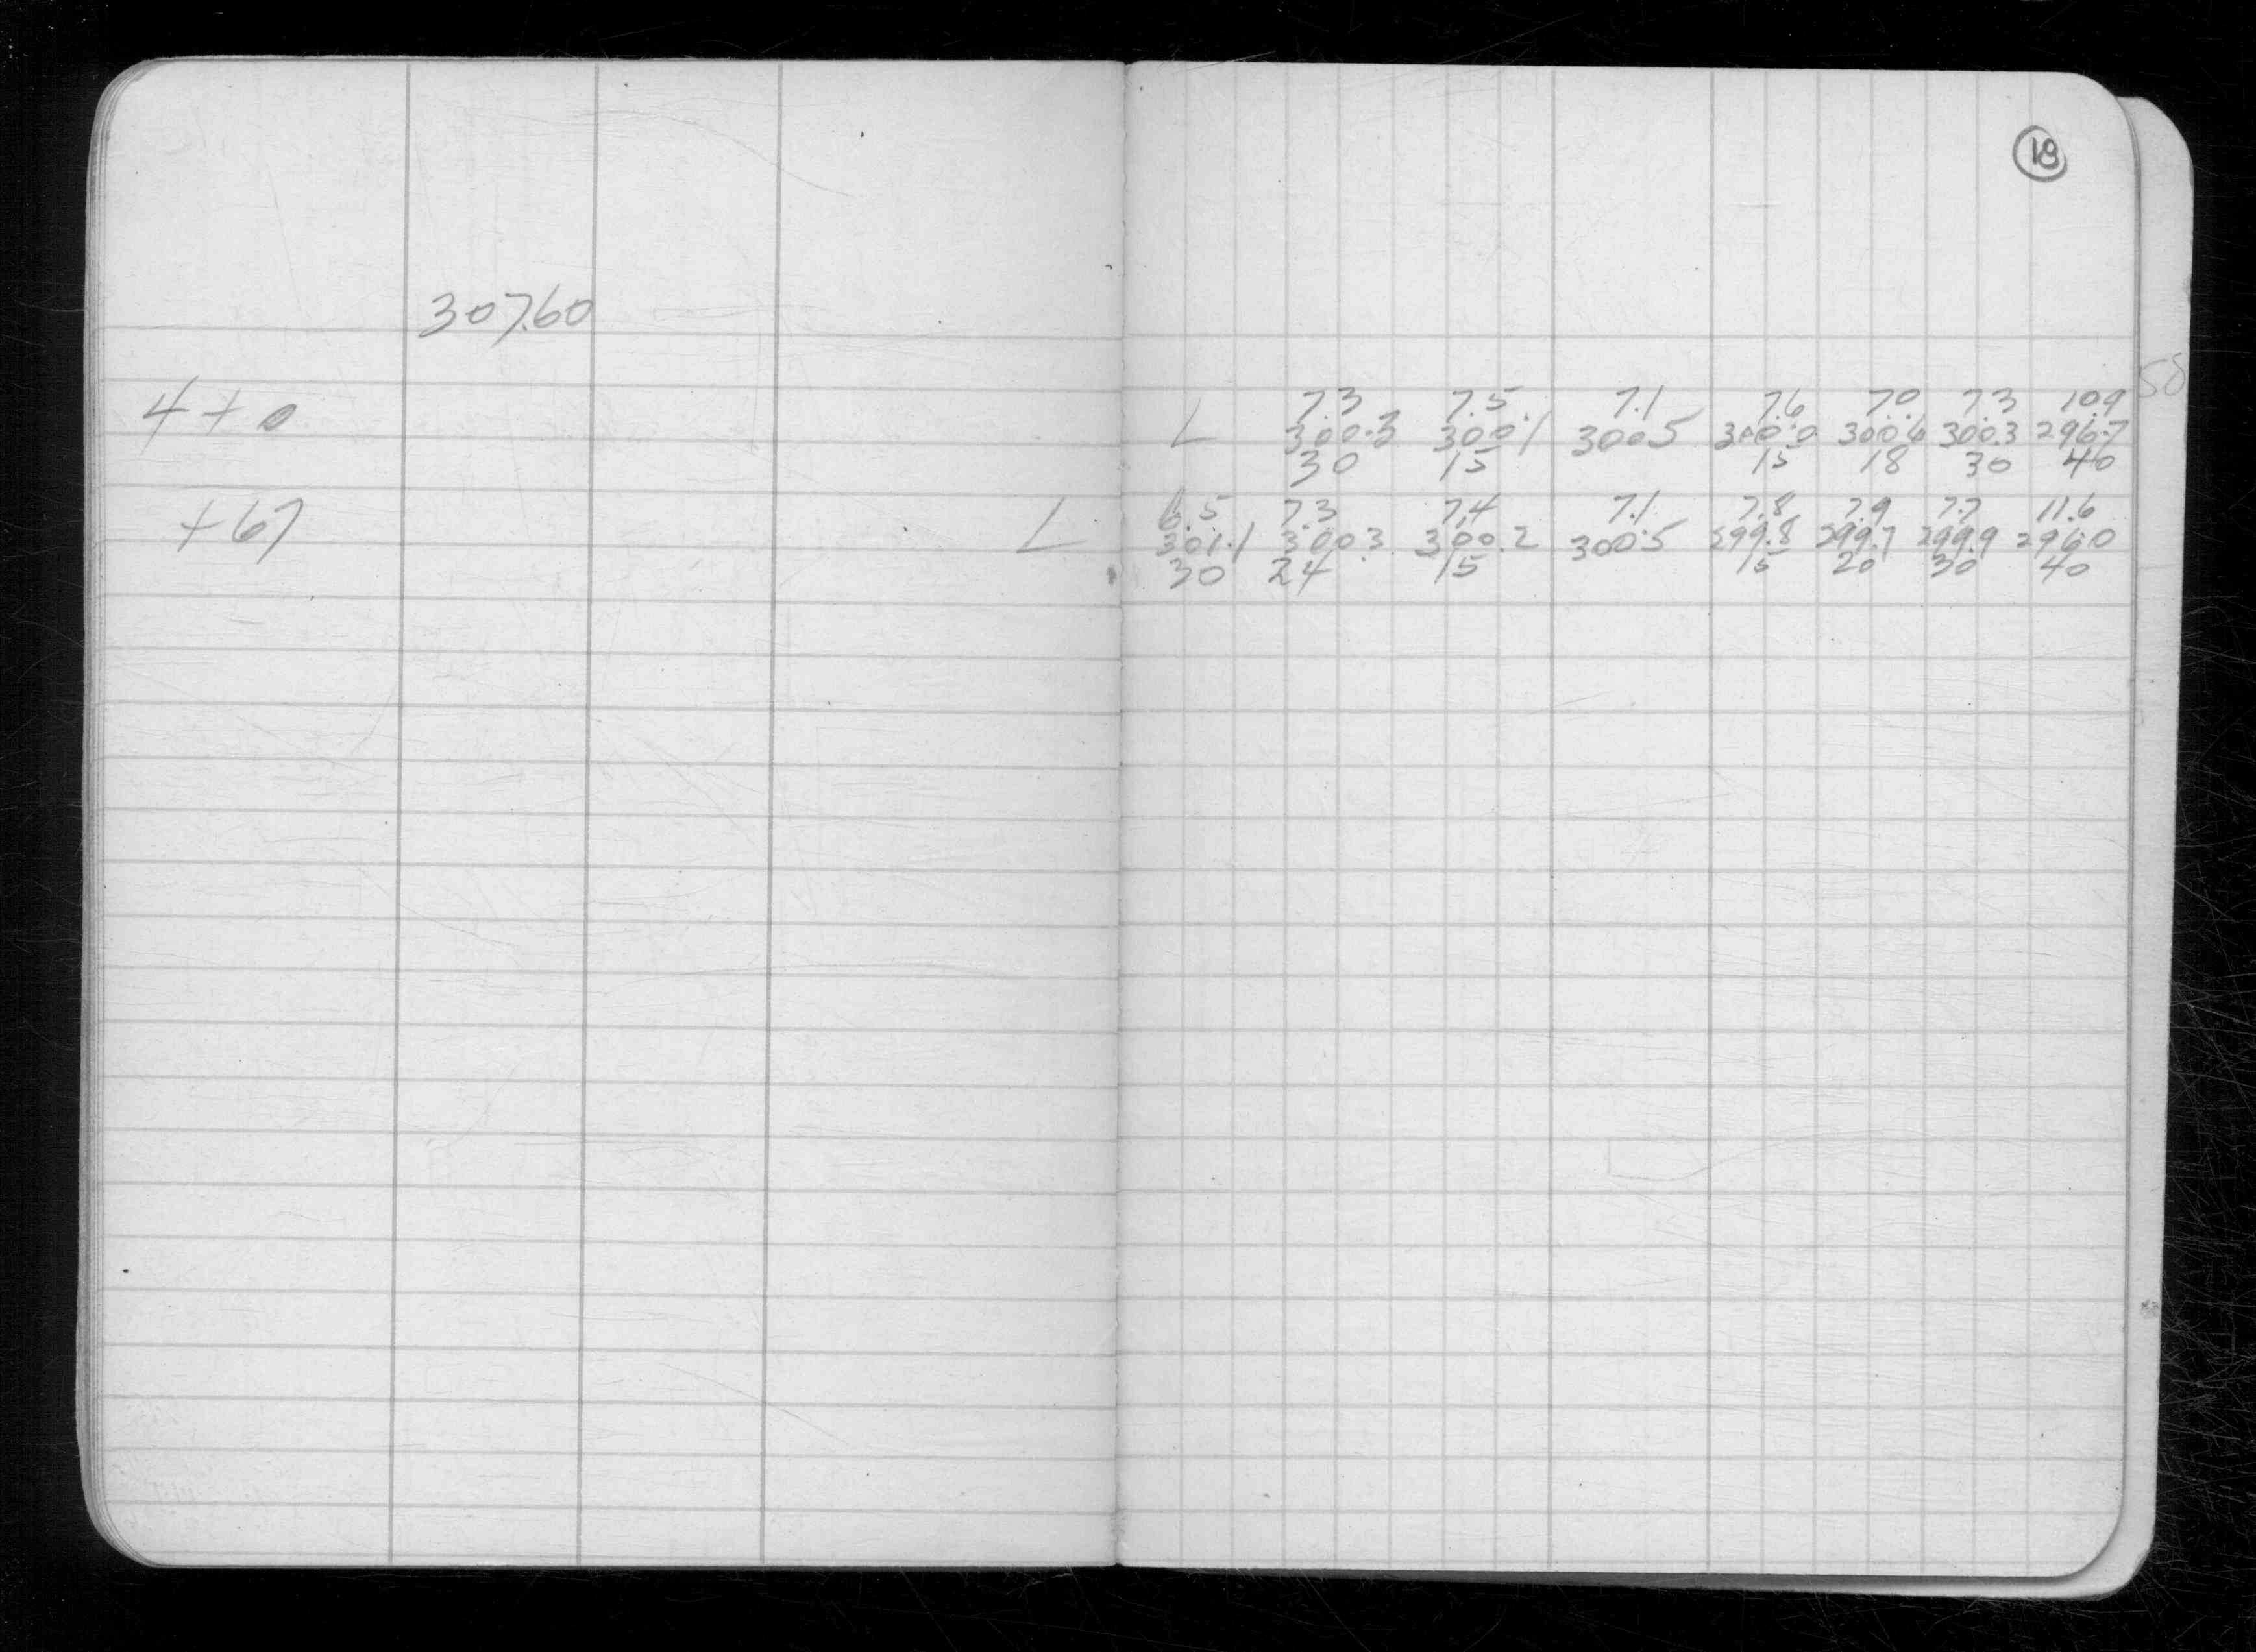 18
307.60
7.3 7.5 7.1 7.6 7.0 7.3 10.9
4+0 L 300.3 300.1 300.5 300.0 300.6 300.3 296.7
30 15 15 18 30 40
6.5 7.3 7.4 7.1 7.8 7.9 7.7 11.6
+67 L 301.1 300.3 300.2 300.5 299.8 299.7 299.9 296.0
30 24 15 15 20 30 40